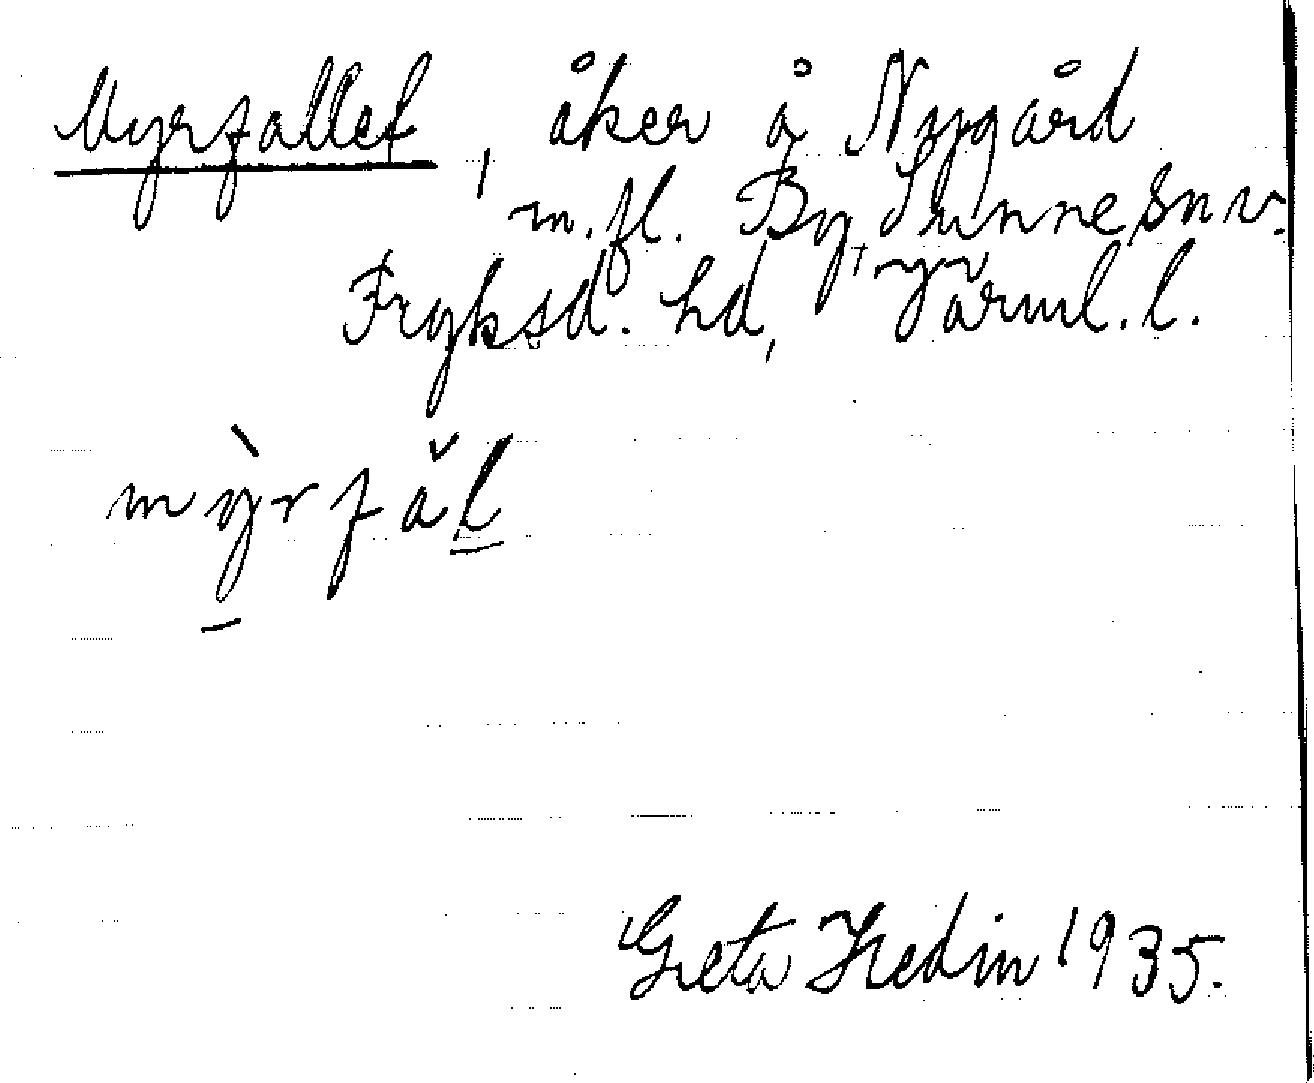 Myrfallet, åker å Nygård
m.fl. By, Sunne sn v.
Fryksd. hd, Värml. l.
mỳrfăl
Greta Hedin 1935.